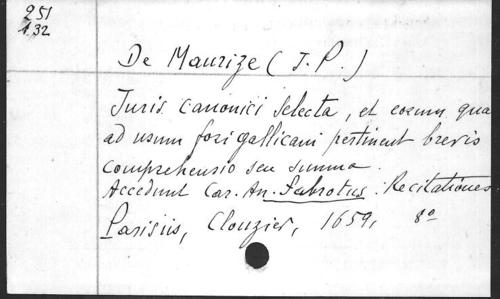 251
132
De Maurize (J. P.)
Juris canonici selecta, et eorum qua
ad usum fori gallicani pertinent brevis
comprehensio seu summa.
Accedunt Car. An. Fabrotus. Recitationes
Parisiis, Clouzier, 1659, 8º